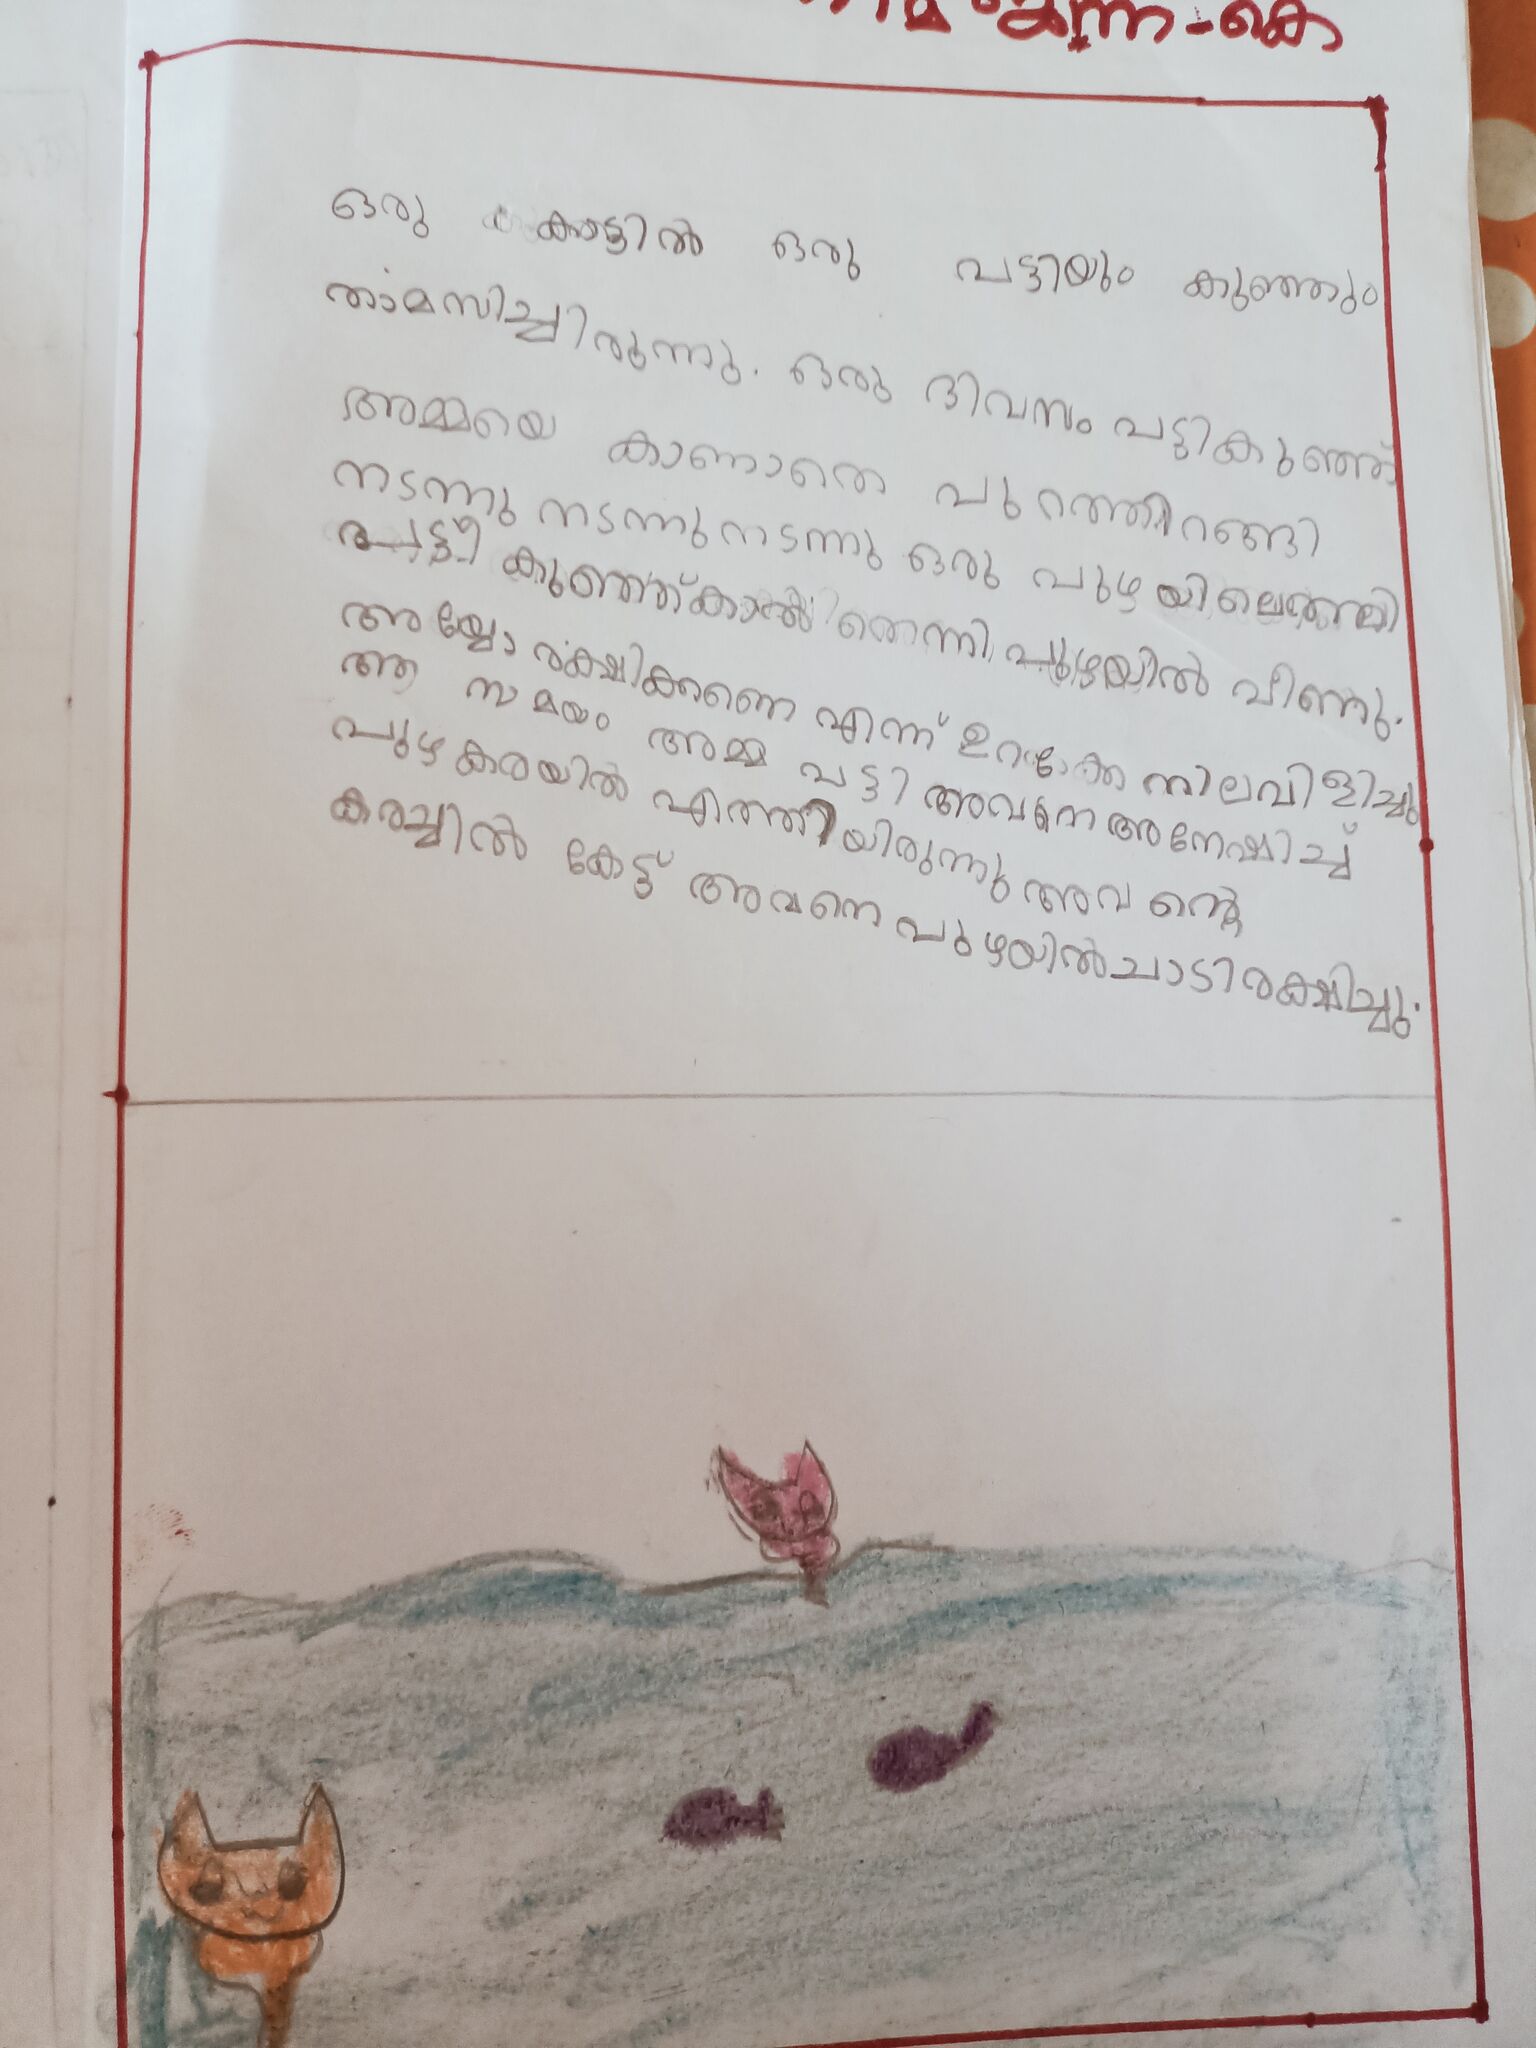 ഒരു കാട്ടിൽ ഒരു പട്ടിയും കുഞ്ഞും
താമസിച്ചിരുന്നു. ഒരു ദിവസം പട്ടികുഞ്ഞ്
അമ്മയെ കാണാതെ പുറത്തിറങ്ങി
നടന്നു നടന്നു നടന്നു ഒരു പുഴയിലെത്തി
പട്ടി കുഞ്ഞ് കാൽ തെന്നി പുഴയിൽ വീണു.
അയ്യോ രക്ഷിക്കണെ എന്ന് ഉറക്കെ നിലവിളിച്ചു
ആ സമയം അമ്മ പട്ടി അവനെ അന്വേഷിച്ച്
പുഴകരയിൽ എത്തിയിരുന്നു അവന്റെ
കരച്ചിൽ കേട്ട് അവനെ പുഴയിൽ ചാടി രക്ഷിച്ചു.